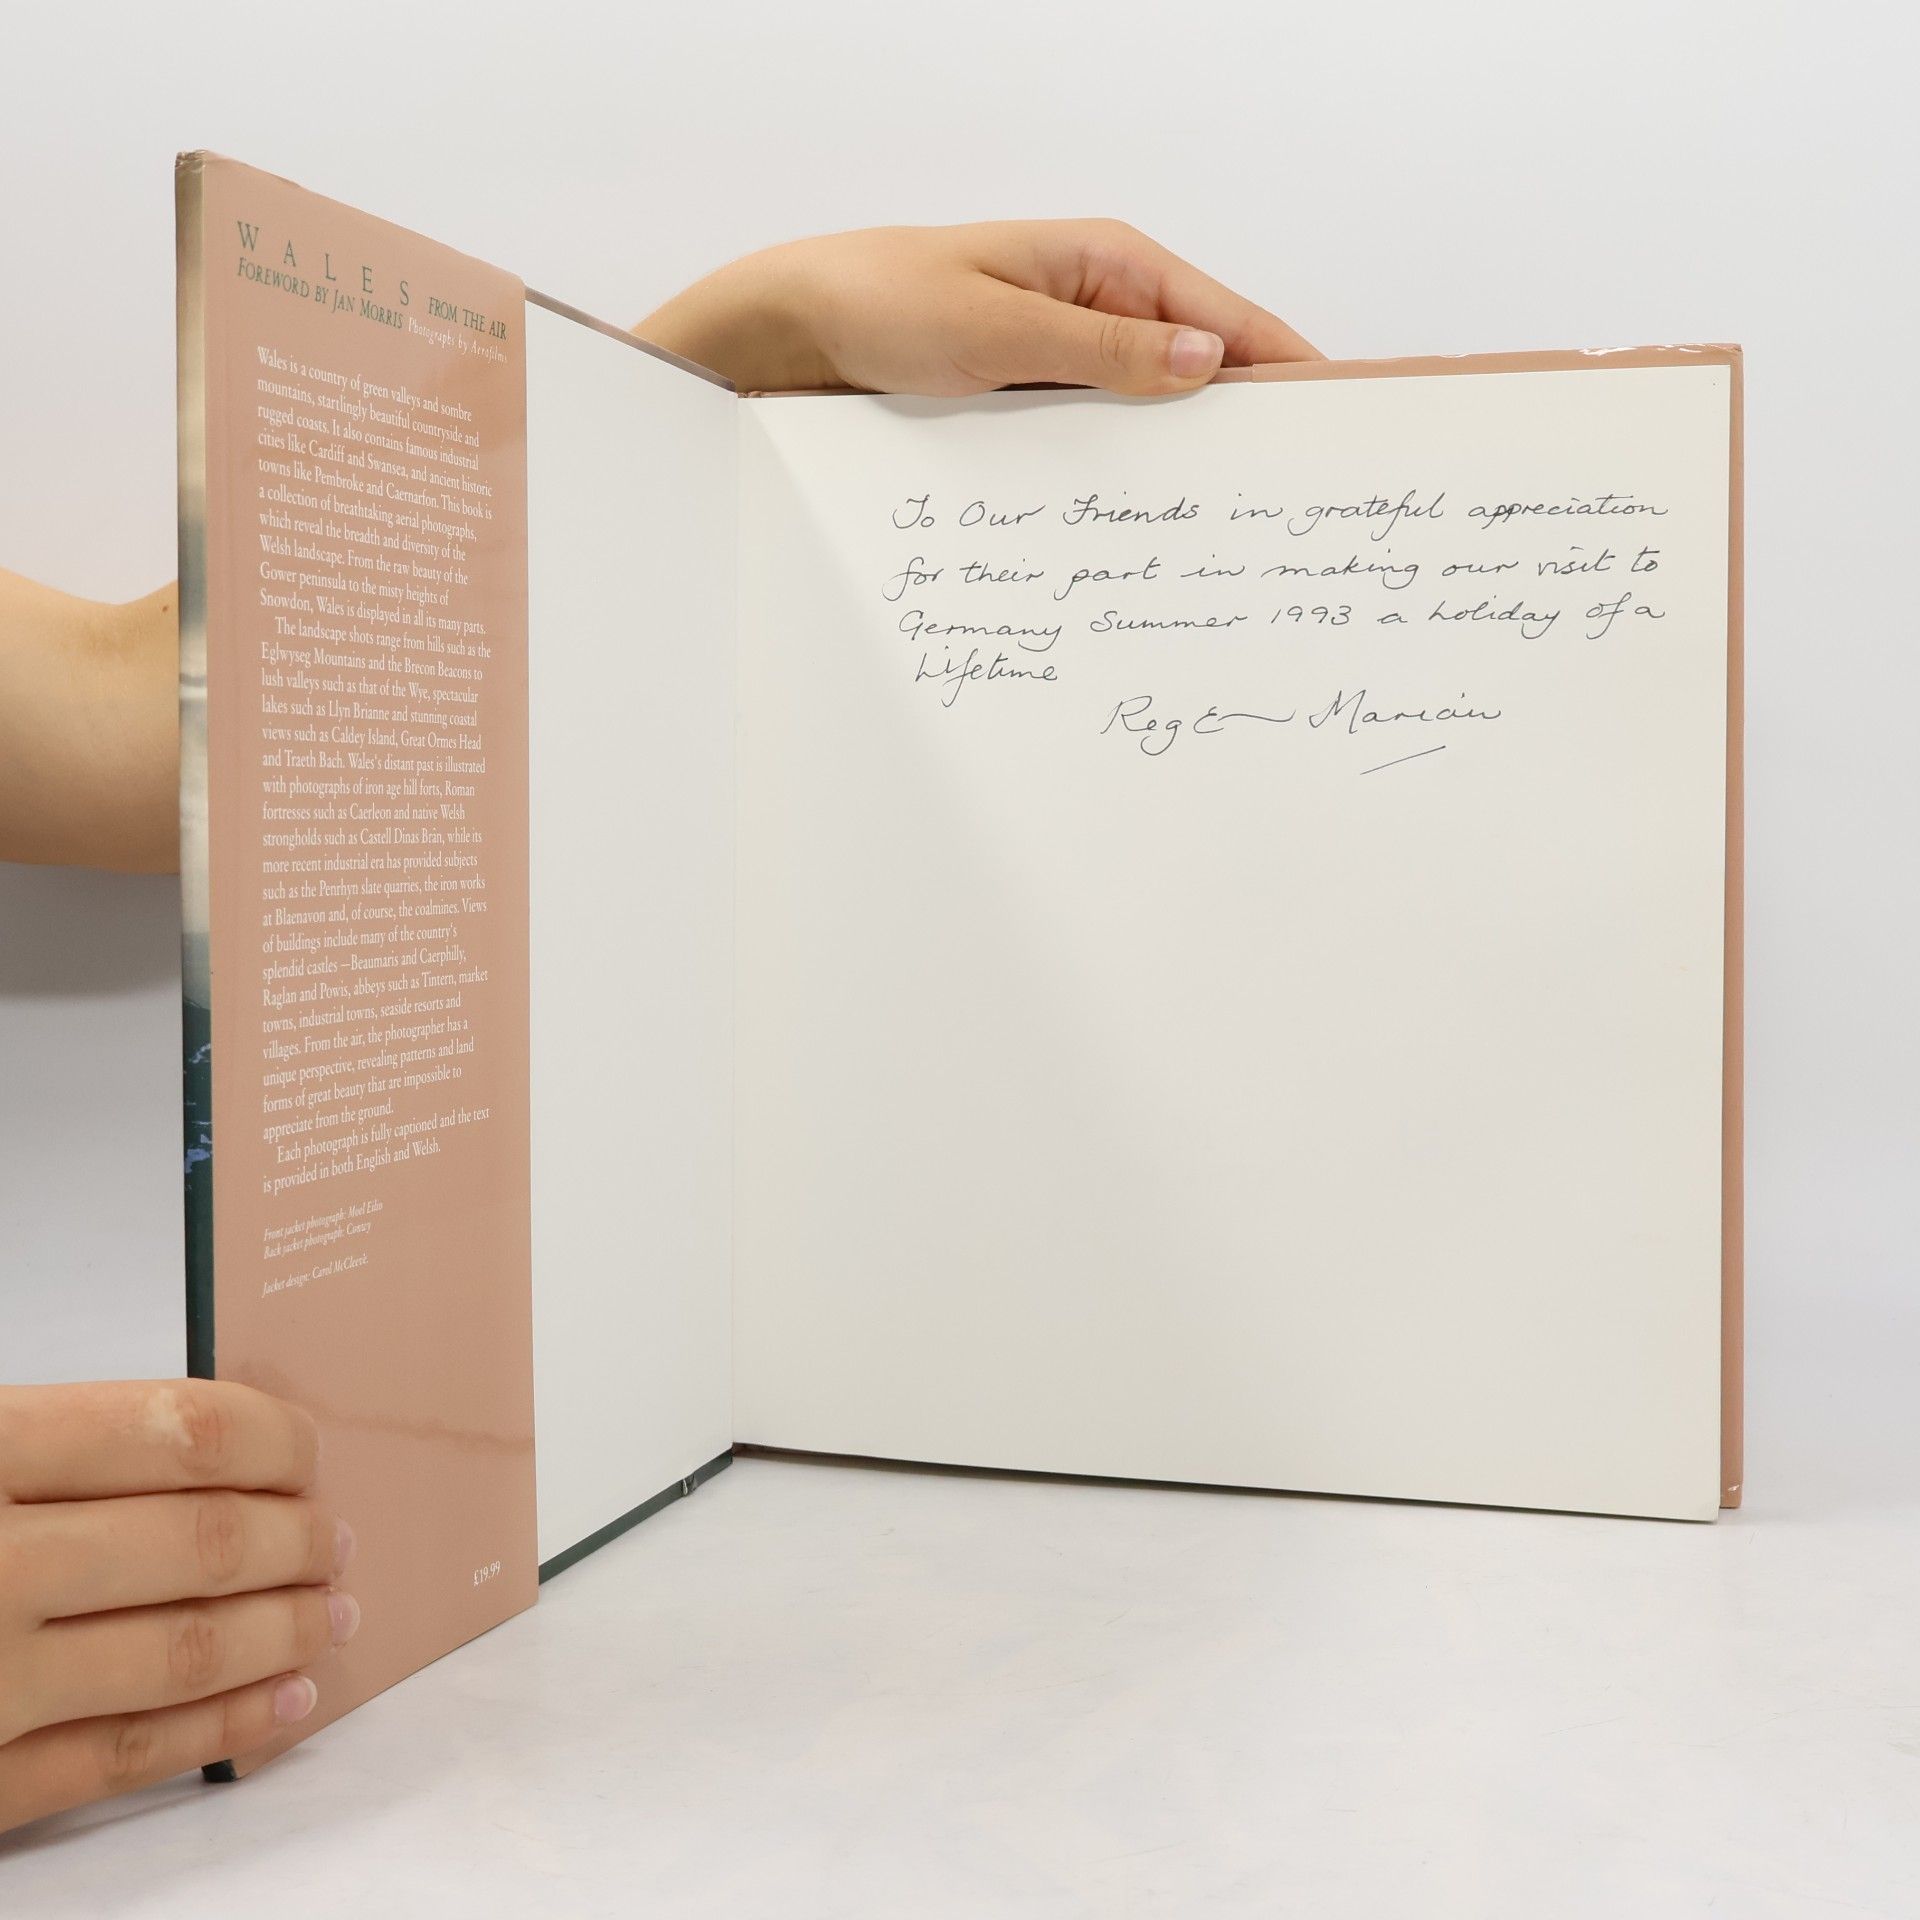 WALES FROM THE AIR
FOREWORD BY JAN MORRIS Photographs by Aerofilms
Wales is a country of green valleys and sombre
mountains, startlingly beautiful countryside and
rugged coasts. It also contains famous industrial
cities like Cardiff and Swansea, and ancient historic
towns like Pembroke and Caernarfon. This book is
a collection of breathtaking aerial photographs,
which reveal the breadth and diversity of the
Welsh landscape. From the raw beauty of the
Gower peninsula to the misty heights of
Snowdon, Wales is displayed in all its many parts.
The landscape shots range from hills such as the
Eglwyseg Mountains and the Brecon Beacons to
lush valleys such as that of the Wye, spectacular
lakes such as Llyn Brianne and stunning coastal
views such as Caldey Island, Great Ormes Head
and Traeth Bach. Wales's distant past is illustrated
with photographs of iron age hill forts, Roman
fortresses such as Caerleon and native Welsh
strongholds such as Castell Dinas Brân, while its
more recent industrial era has provided subjects
such as the Penrhyn slate quarries, the iron works
at Blaenavon and, of course, the coalmines. Views
of buildings include many of the country's
splendid castles —Beaumaris and Caerphilly,
Raglan and Powis, abbeys such as Tintern, market
towns, industrial towns, seaside resorts and
villages. From the air, the photographer has a
unique perspective, revealing patterns and land
forms of great beauty that are impossible to
appreciate from the ground.
Each photograph is fully captioned and the text
is provided in both English and Welsh.
Front jacket photograph: Moel Eilio
Back jacket photograph: Conwy
Jacket design: Carol McCleeve.
£19.99
To Our Friends in grateful appreciation
for their part in making our visit to
Germany Summer 1993 a holiday of a
Lifetime
Reg & Marian